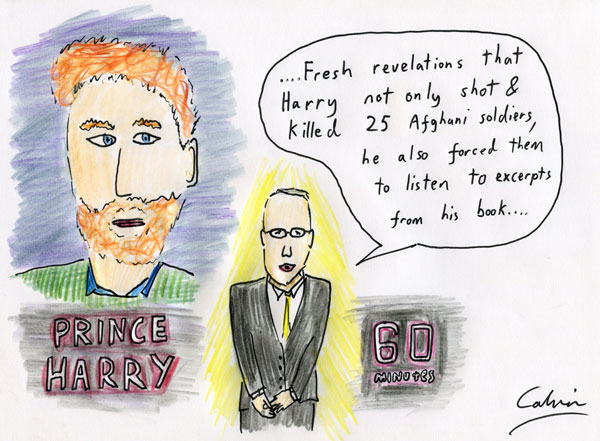 ....Fresh revelations that
Harry not only shot &
killed 25 Afghani soldiers,
he also forced them
to listen to excerpts
from his book....
PRINCE
HARRY
60
MINUTES
Calvin